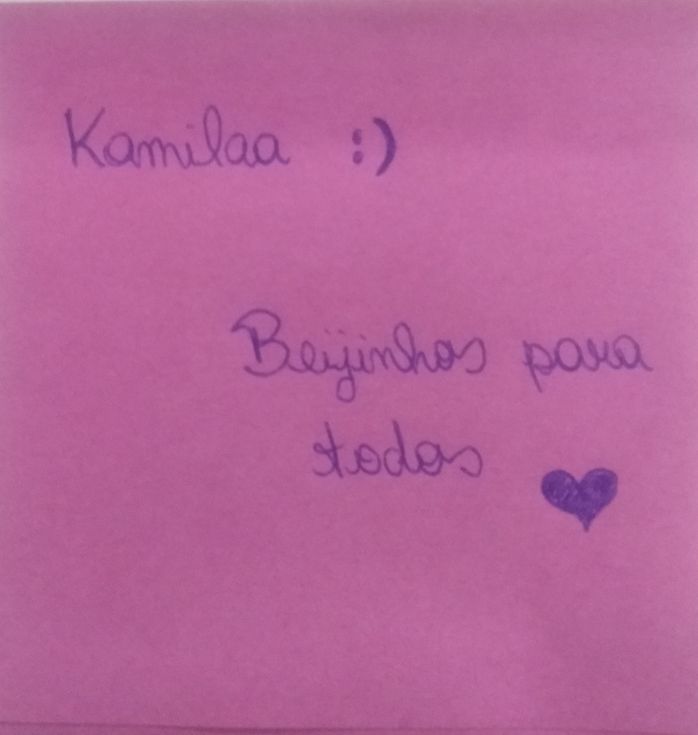 Kamilaa :)
Beijinhos para
todos